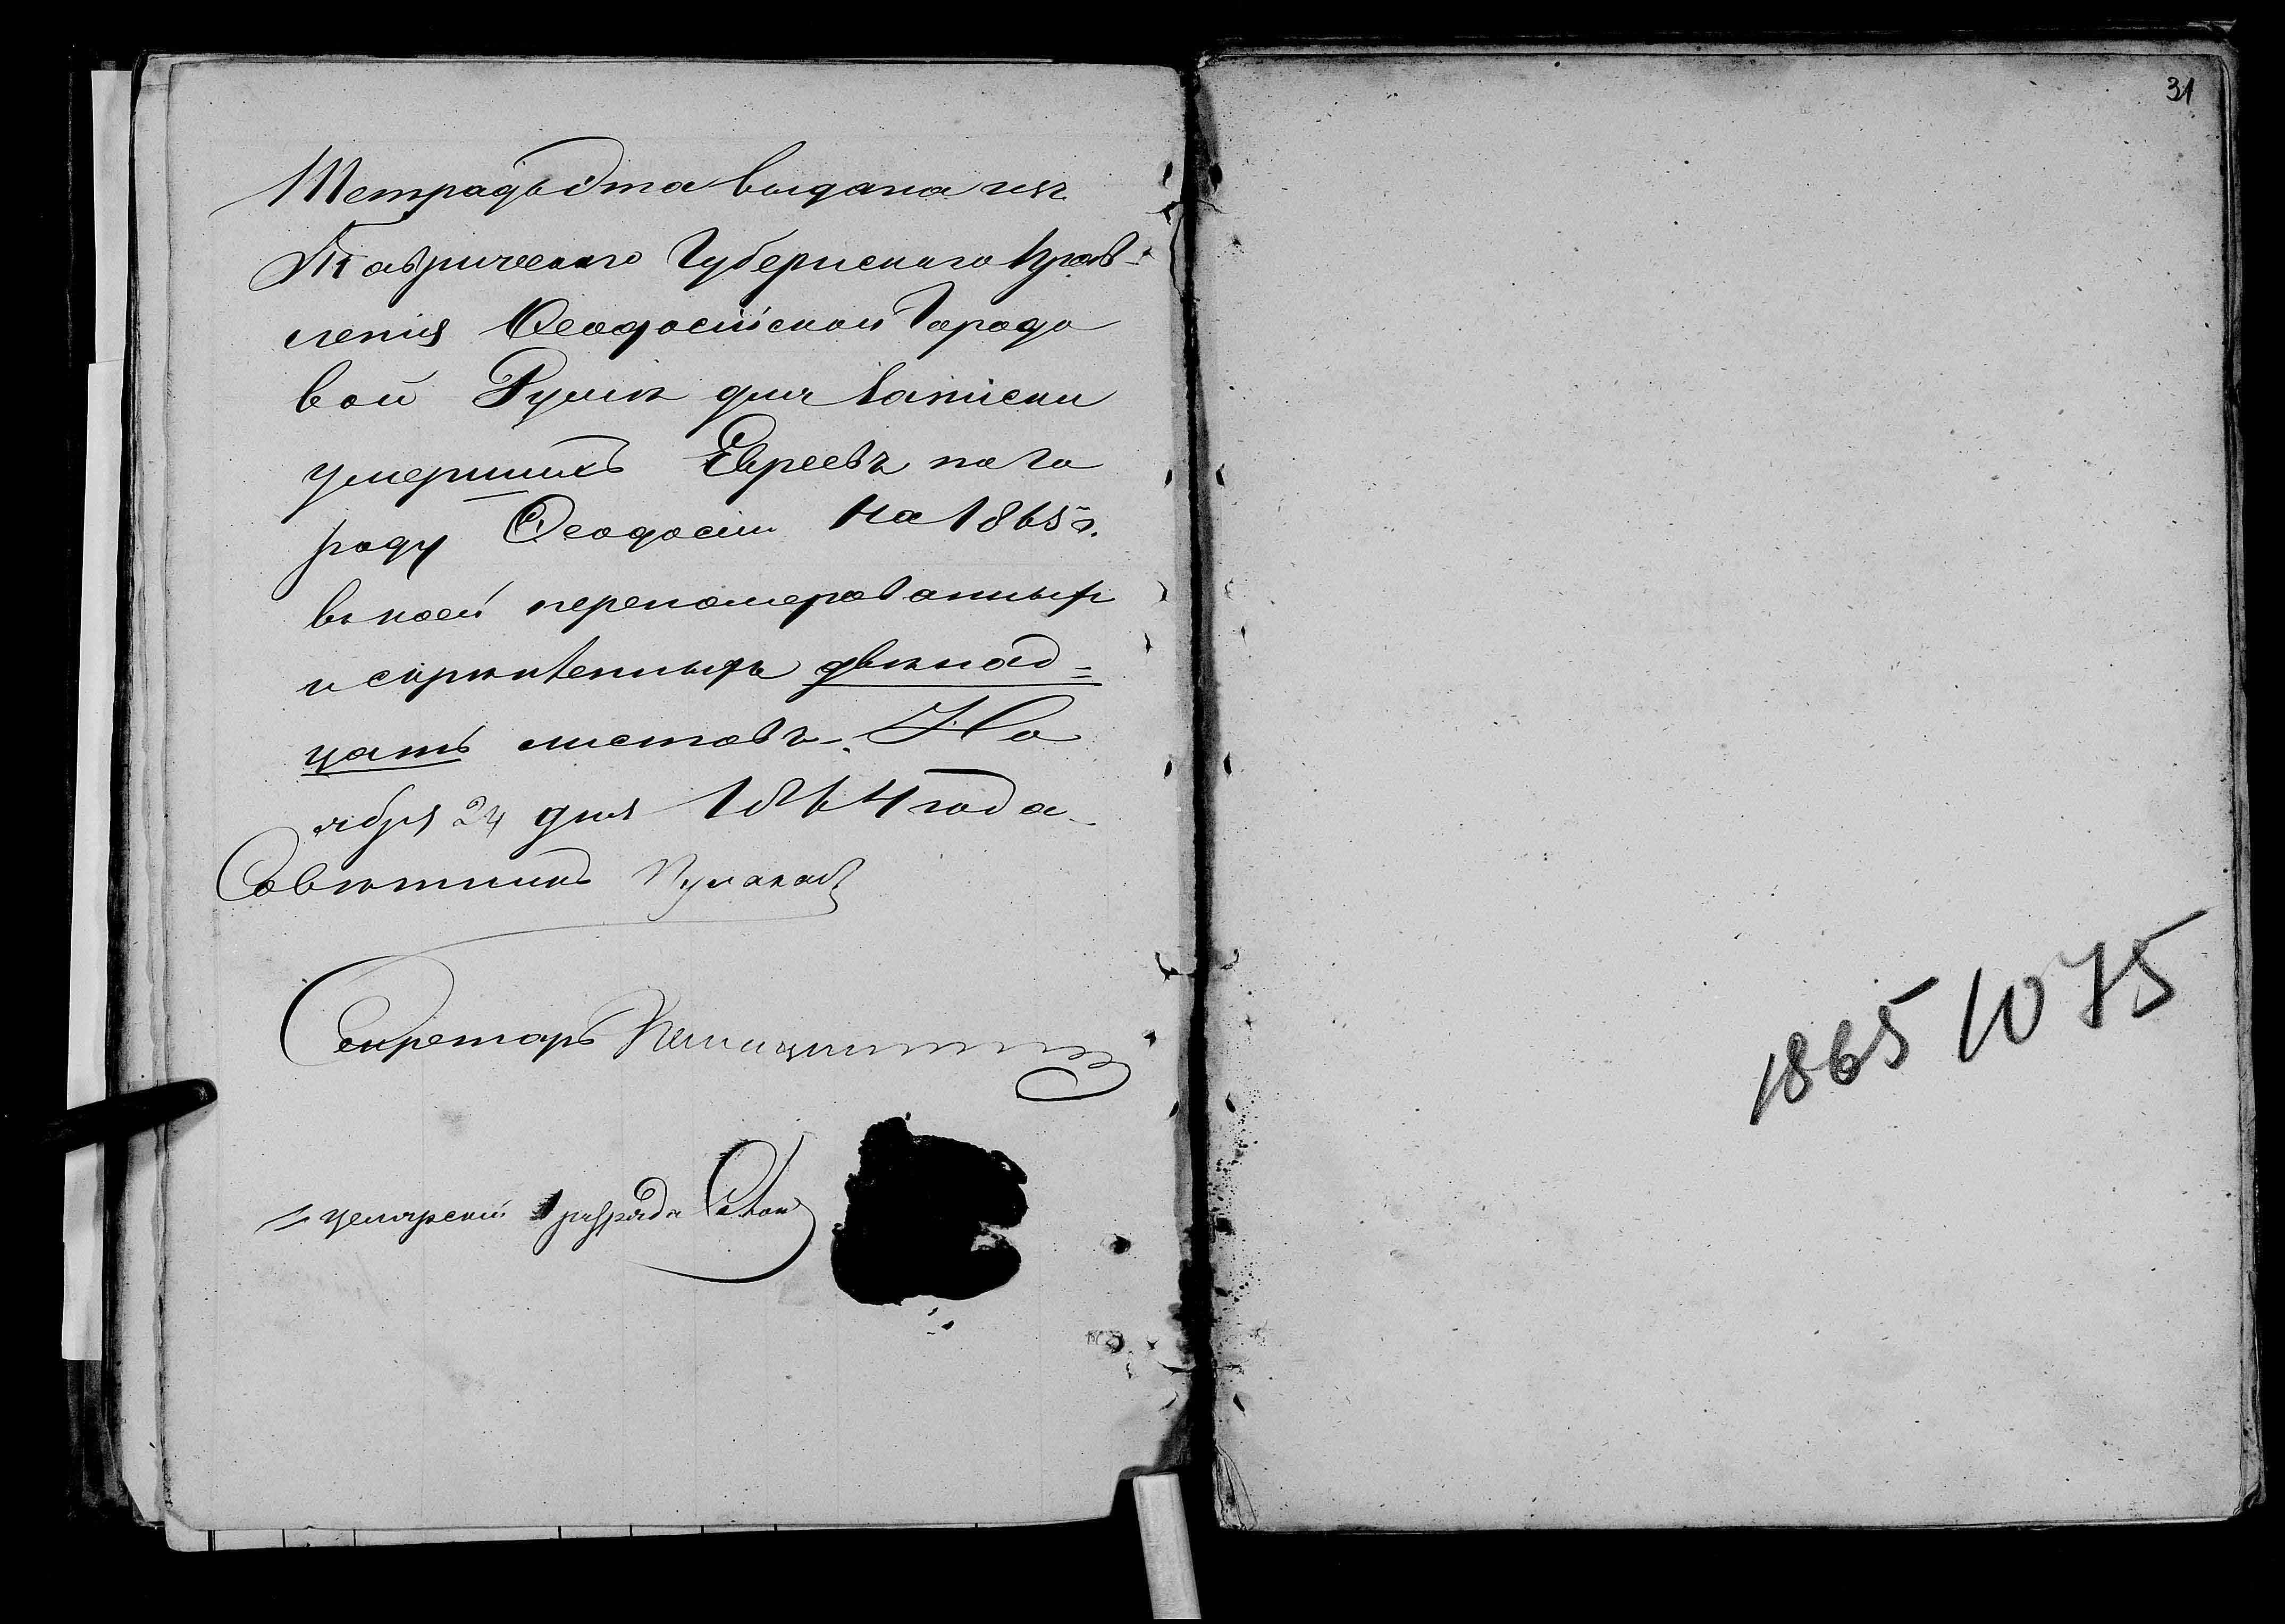 Тетрадь эта выдана изъ
Таврического Губернского Прав-
ленія Феодосійской Городо
вой Думѣ для записки
умершихъ Евреевъ по го
роду Феодосіи на 1865 г.
въ коей переномерованныхъ
и скрѣпленныхъ двѣнад=
цать листовъ. Но
ября 24 дня 1864 года
Совѣтникъ
Секретарь
1 разряда
31
1865 1075